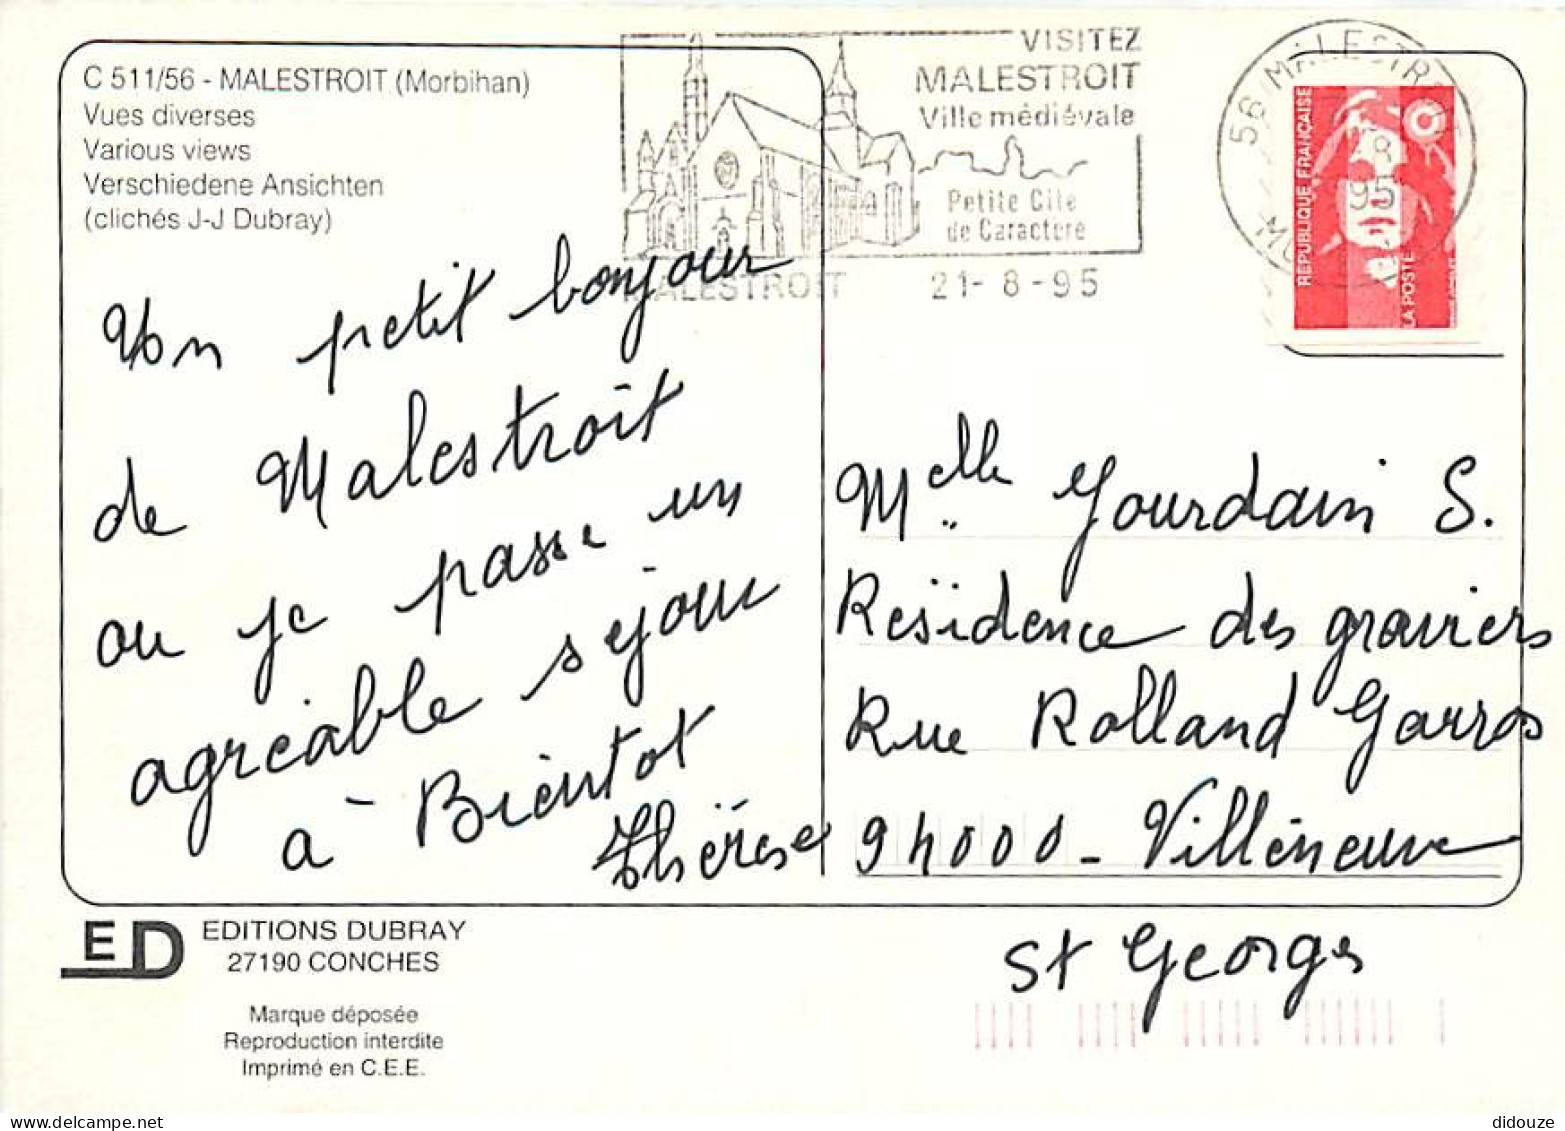 C 511/56 - MALESTROIT (Morbihan)
Vues diverses
Various views
Verschiedene Ansichten
(clichés J-J Dubray)
VISITEZ
MALESTROIT
Ville médiévale
Petite Cite
de Caractere
MALESTROIT 21- 8 -95
56 MALESTROIT
95
RÉPUBLIQUE FRANÇAISE
LA POSTE
Un petit bonjour
de Malestroit
ou je passe un
agréable séjour
à Bientot
Thérèse
Melle Jourdain S.
Résidence des graviers
Rue Rolland Garros
94000 - Villeneuve
St Georges
ED
EDITIONS DUBRAY
27190 CONCHES
Marque déposée
Reproduction interdite
Imprimé en C.E.E.
didouze